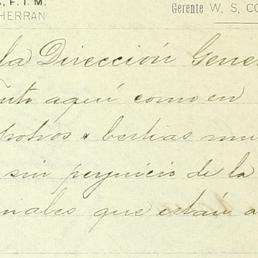 S, F. I. M.
HERRAN
Gerente W. S. CO
la Dirección Gene
aquí como en
potros y bestias mu
sin perjuicio de la
nales que están a